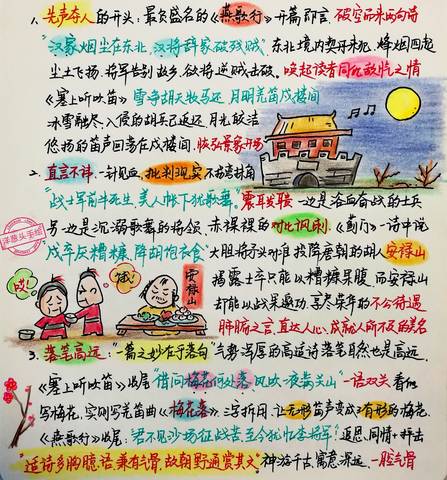 1. 先声夺人的开头:最负盛名的《燕歌行》开篇即言,破空而来两句诗
"汉家烟尘在东北,汉将辞家破残贼",东北境内契丹来犯,烽烟四起
尘土飞扬,将军告别故乡,欲将逆贼击破。唤起读者同仇敌忾之情
《塞上听吹笛》雪净胡天牧马还 月明羌笛戍楼间
冰雪融尽,入侵的胡兵已返还,月光皎洁
悠扬的笛声回荡在戍楼间。恢弘景象开场
2. 直言不讳,一针见血,批判现实不拐弯抹角
"战士军前半死生,美人帐下犹歌舞。"震耳发聩 一边是浴血奋战的士兵
另一边是沉溺歌舞的将领,赤裸裸的对比讽刺。《蓟门》一诗中说
"戍卒厌糟糠,降胡饱衣食"大胆将矛头对准投降唐朝的胡人安禄山
揭露士卒只能以糟糠果腹,而安禄山
却能以战果邀功,享尽荣华的不公待遇
肺腑之言,直达人心,成就人所不及的美名
哎!
饿!
安禄山
洋葱头手绘
3. 落笔高远:"一篇之妙在乎落句"气势浑厚的高适诗落笔自然也是高远.
《塞上听吹笛》收尾"借问梅花何处落,风吹一夜满关山"一语双关 看似
写梅花,实则写羌笛曲《梅花落》三字拆用,让无形笛声变成了有形的梅花.
《燕歌行》收尾:君不见沙场征战苦,至今犹忆李将军!追思、同情+抨击
"适诗多胸臆语,兼有气骨,故朝野通赏其文"神游千古,寓意深远,一腔气骨